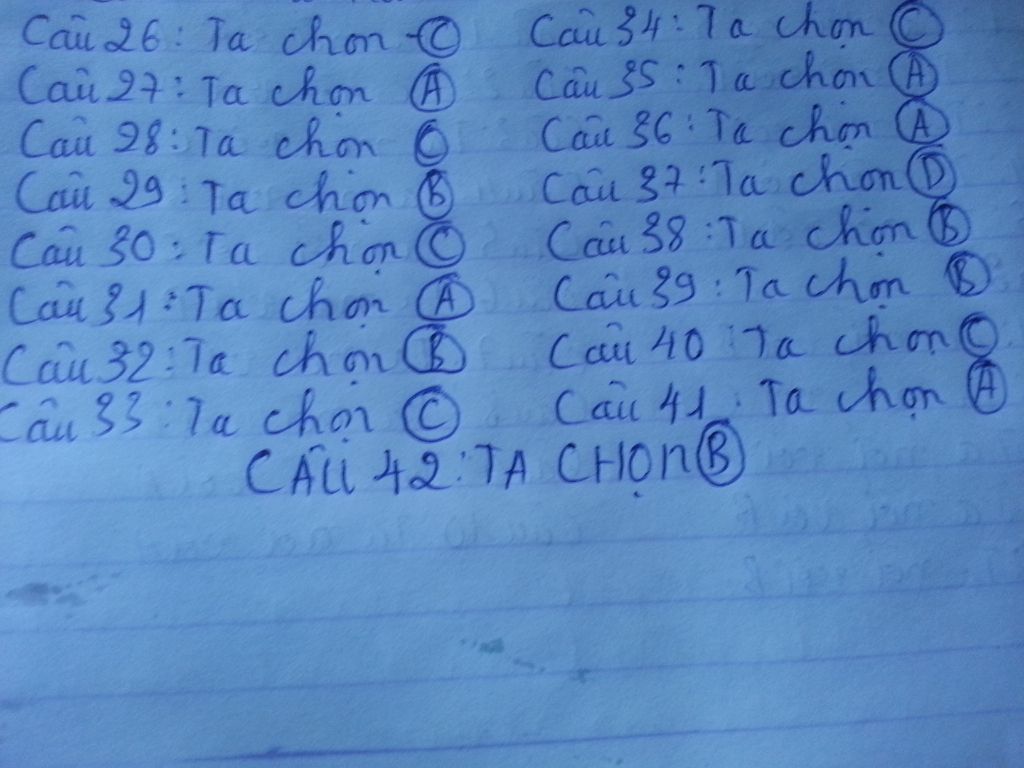 Câu 26: Ta chọn C
Câu 27: Ta chọn A
Câu 28: Ta chọn C
Câu 29: Ta chọn B
Câu 30: Ta chọn C
Câu 31: Ta chọn A
Câu 32: Ta chọn B
Câu 33: Ta chọn C
Câu 34: Ta chọn C
Câu 35: Ta chọn A
Câu 36: Ta chọn A
Câu 37: Ta chọn D
Câu 38: Ta chọn B
Câu 39: Ta chọn B
Câu 40: Ta chọn C
Câu 41: Ta chọn A
CÂU 42: TA CHỌN B